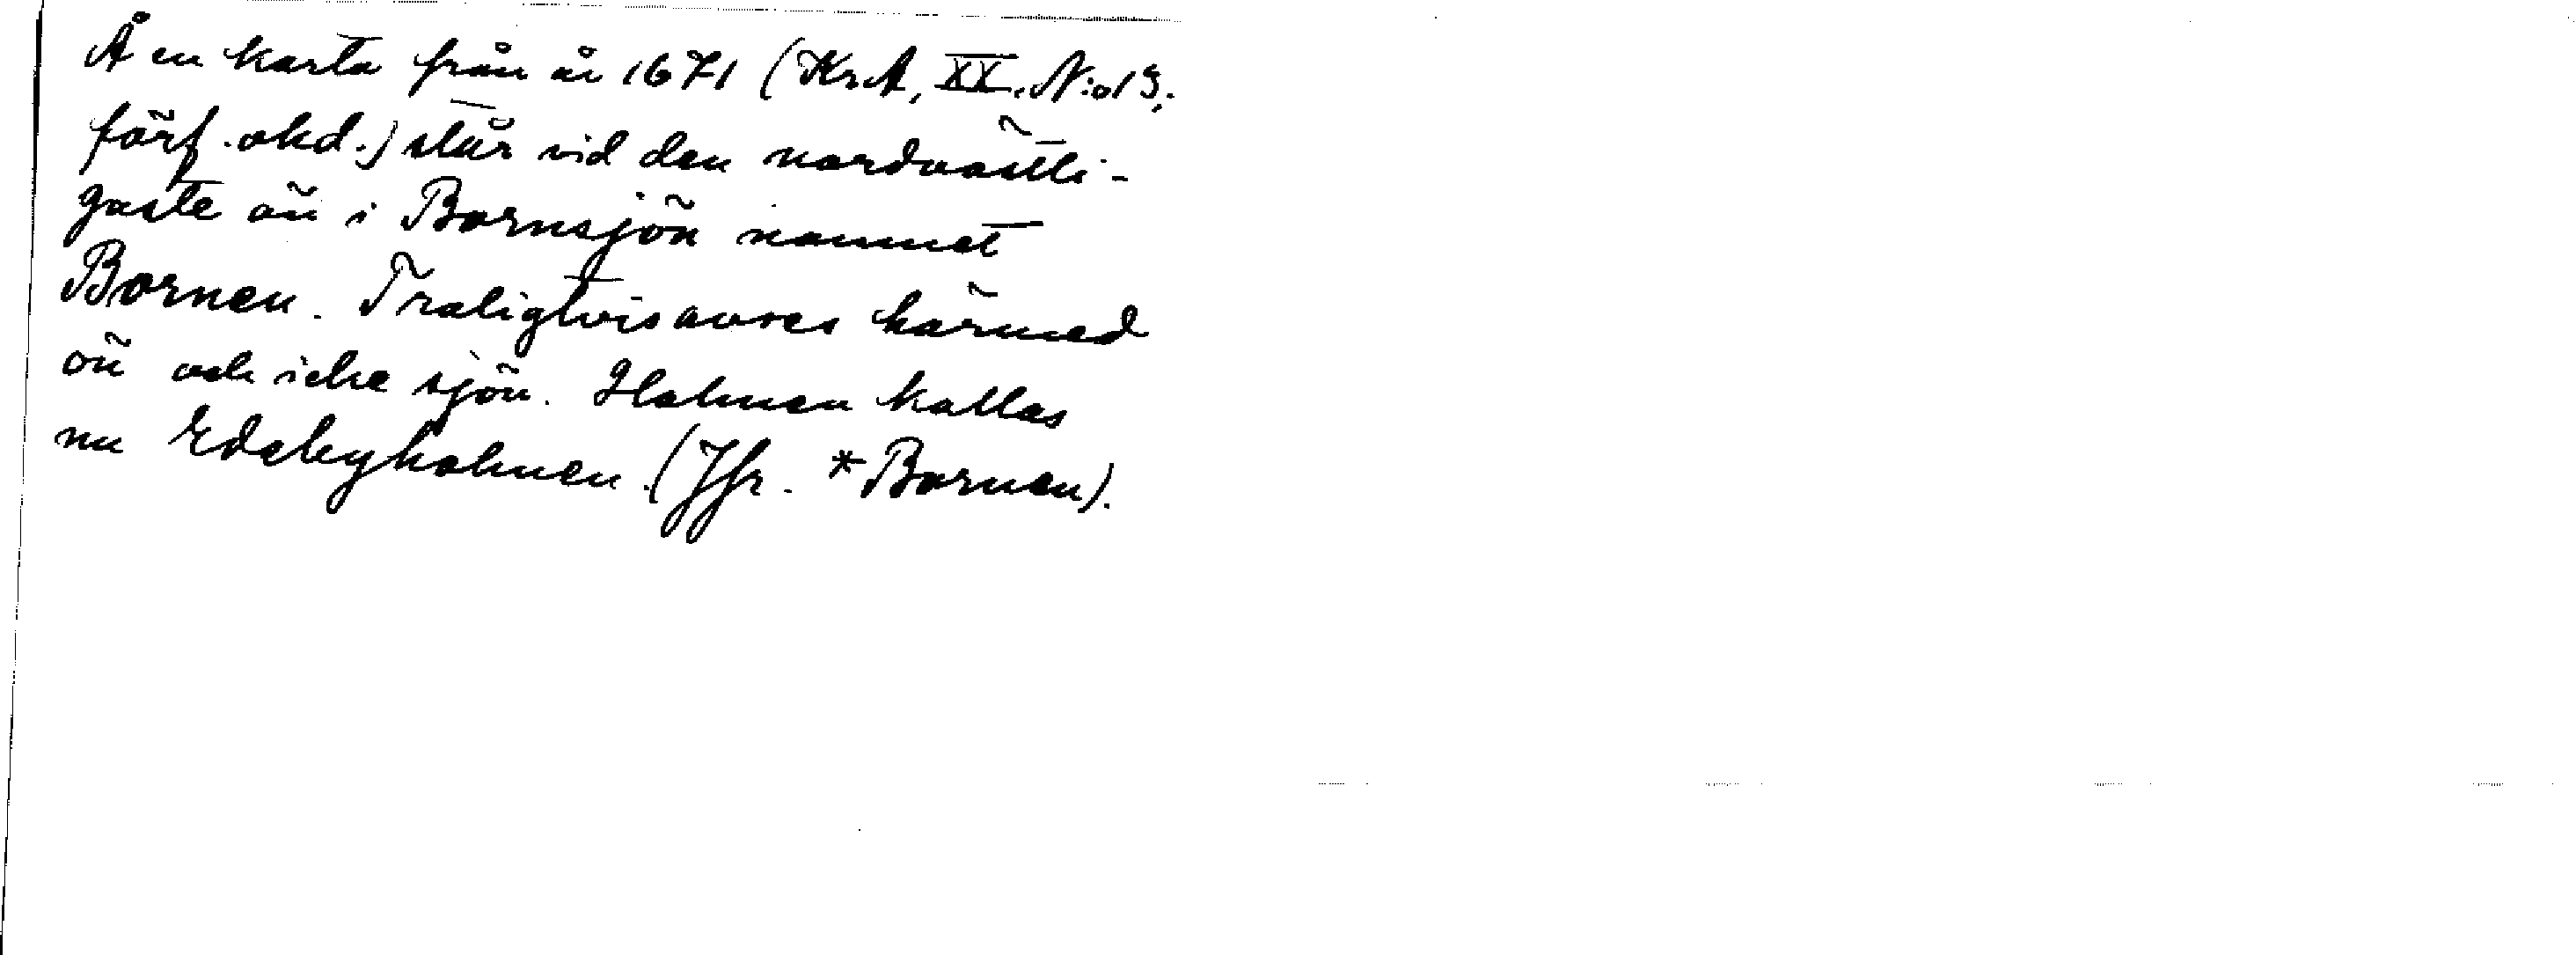 Å en karta från år 1671 (Kr.A, XX. N:o 13;
förf. okd.) står vid den nordvästli-
gaste ön i Bornsjön namnet
Bornen. Troligtvis avses härmed
ön och icke sjön. Holmen kallas
nu Edebyholmen. (Jfr. *Bornen).